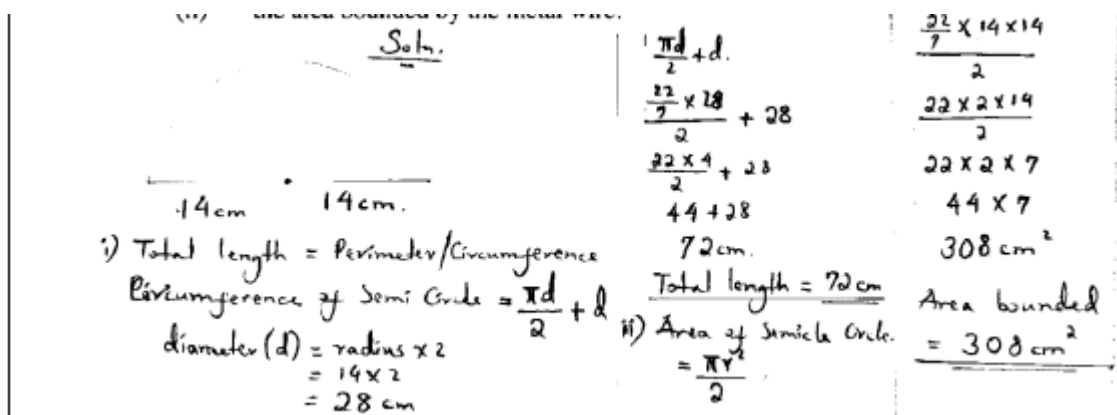 the area bounded by the metal wire.
Soln.
14cm 14cm.
i) Total length = Perimeter/Circumference
Circumference of Semi Circle = πd/2 + d
diameter (d) = radius x 2
= 14 x 2
= 28 cm
πd/2 + d.
22/7 x 28/2 + 28
22 x 4/2 + 28
44 + 28
72cm.
Total length = 72 cm
ii) Area of Semicle Circle.
= πr²/2
22/7 x 14 x 14/2
22 x 2 x 14/2
22 x 2 x 7
44 x 7
308 cm²
Area bounded
= 308 cm²